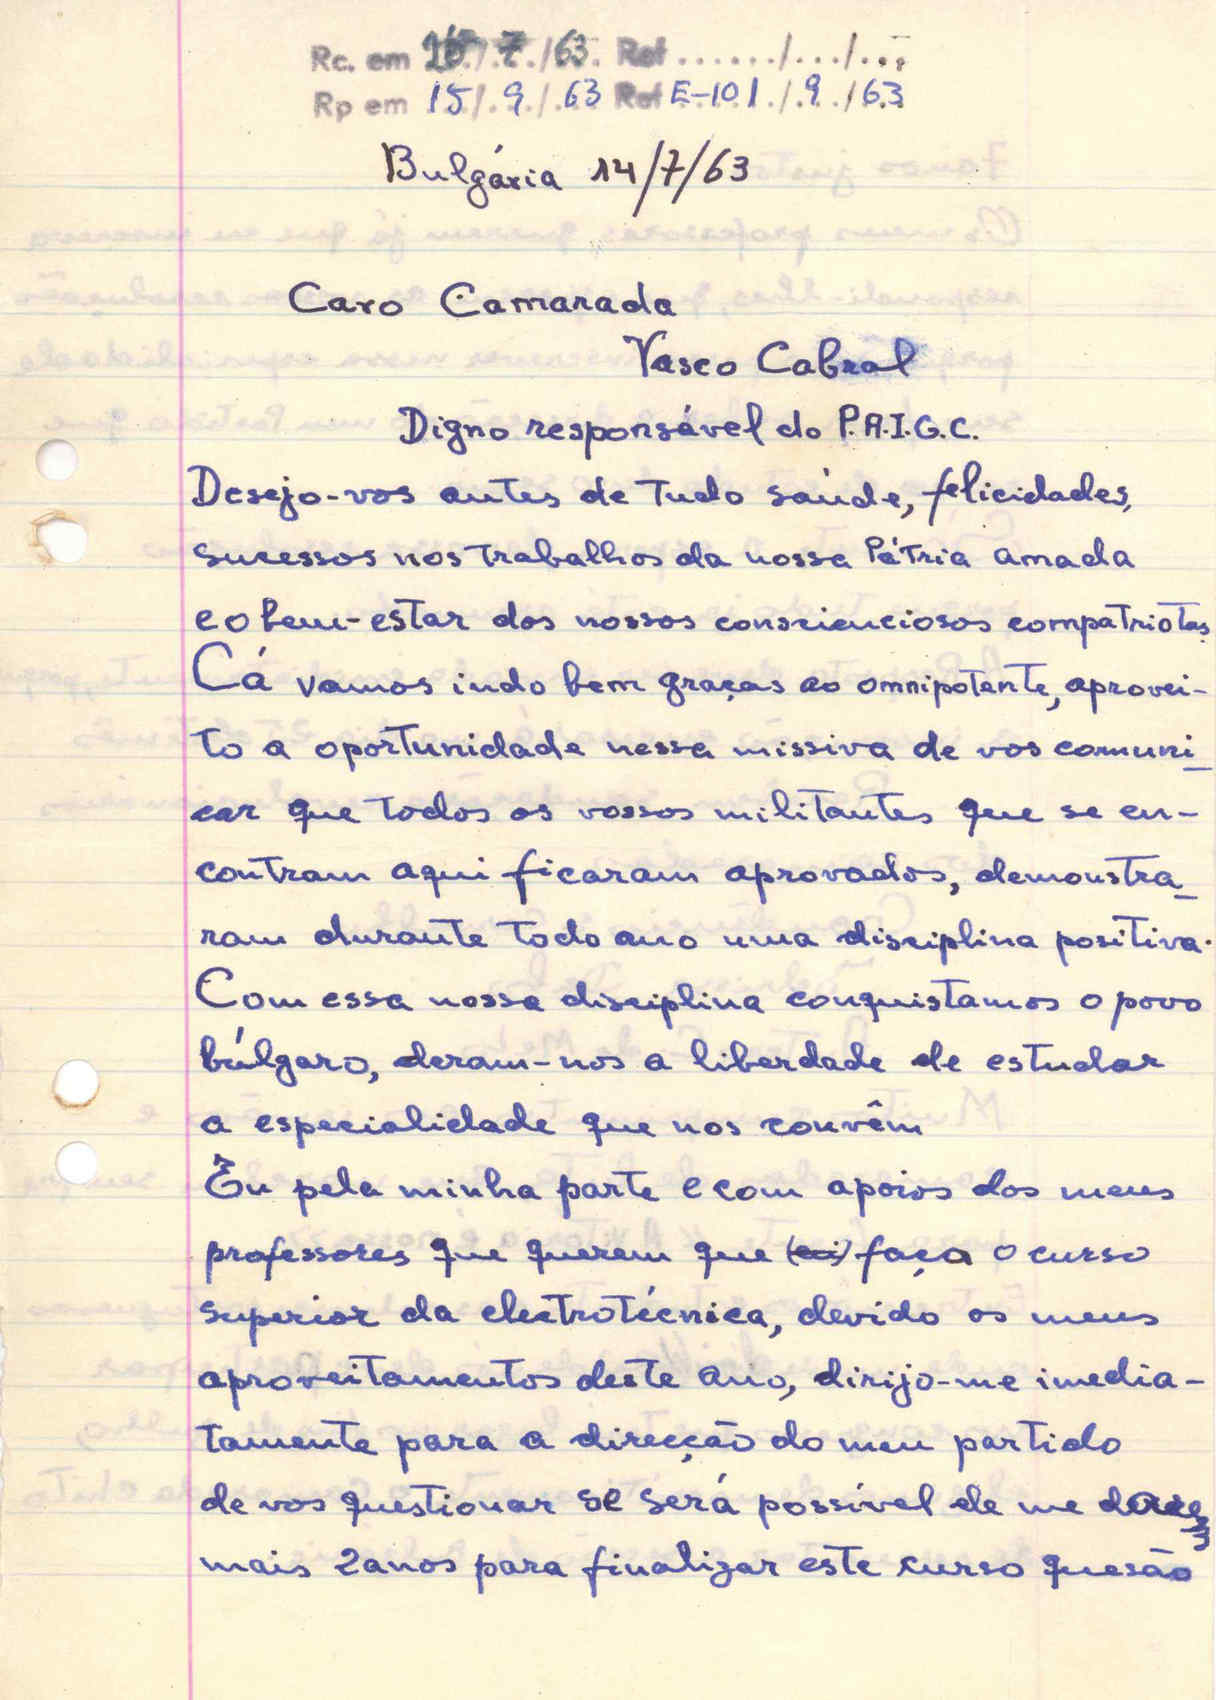 Rc. em 26/7/63. Ref ....../.../...
Rp em 15/9/63 Ref E-101/9/63
Bulgária 14/7/63
Caro Camarada
Vasco Cabral
Digno responsável do P.A.I.G.C.
Desejo-vos antes de tudo saúde, felicidades,
sucessos nos trabalhos da nossa Pátria amada
e o bem-estar dos nossos conscienciosos compatriotas.
Cá vamos indo bem graças ao omnipotente, aprovei-
to a oportunidade nessa missiva de vos comuni-
car que todos os vossos militantes que se en-
contram aqui ficaram aprovados, demonstra-
ram durante todo ano uma disciplina positiva.
Com essa nossa disciplina conquistamos o povo
búlgaro, deram-nos a liberdade de estudar
a especialidade que nos convêm
Eu pela minha parte e com apoios dos meus
professores que querem que faça o curso
superior da electrotécnica, devido os meus
aproveitamentos deste ano, dirijo-me imedia-
tamente para a direcção do meu partido
de vos questionar se será possível de me
mais 2 anos para finalizar este curso que são